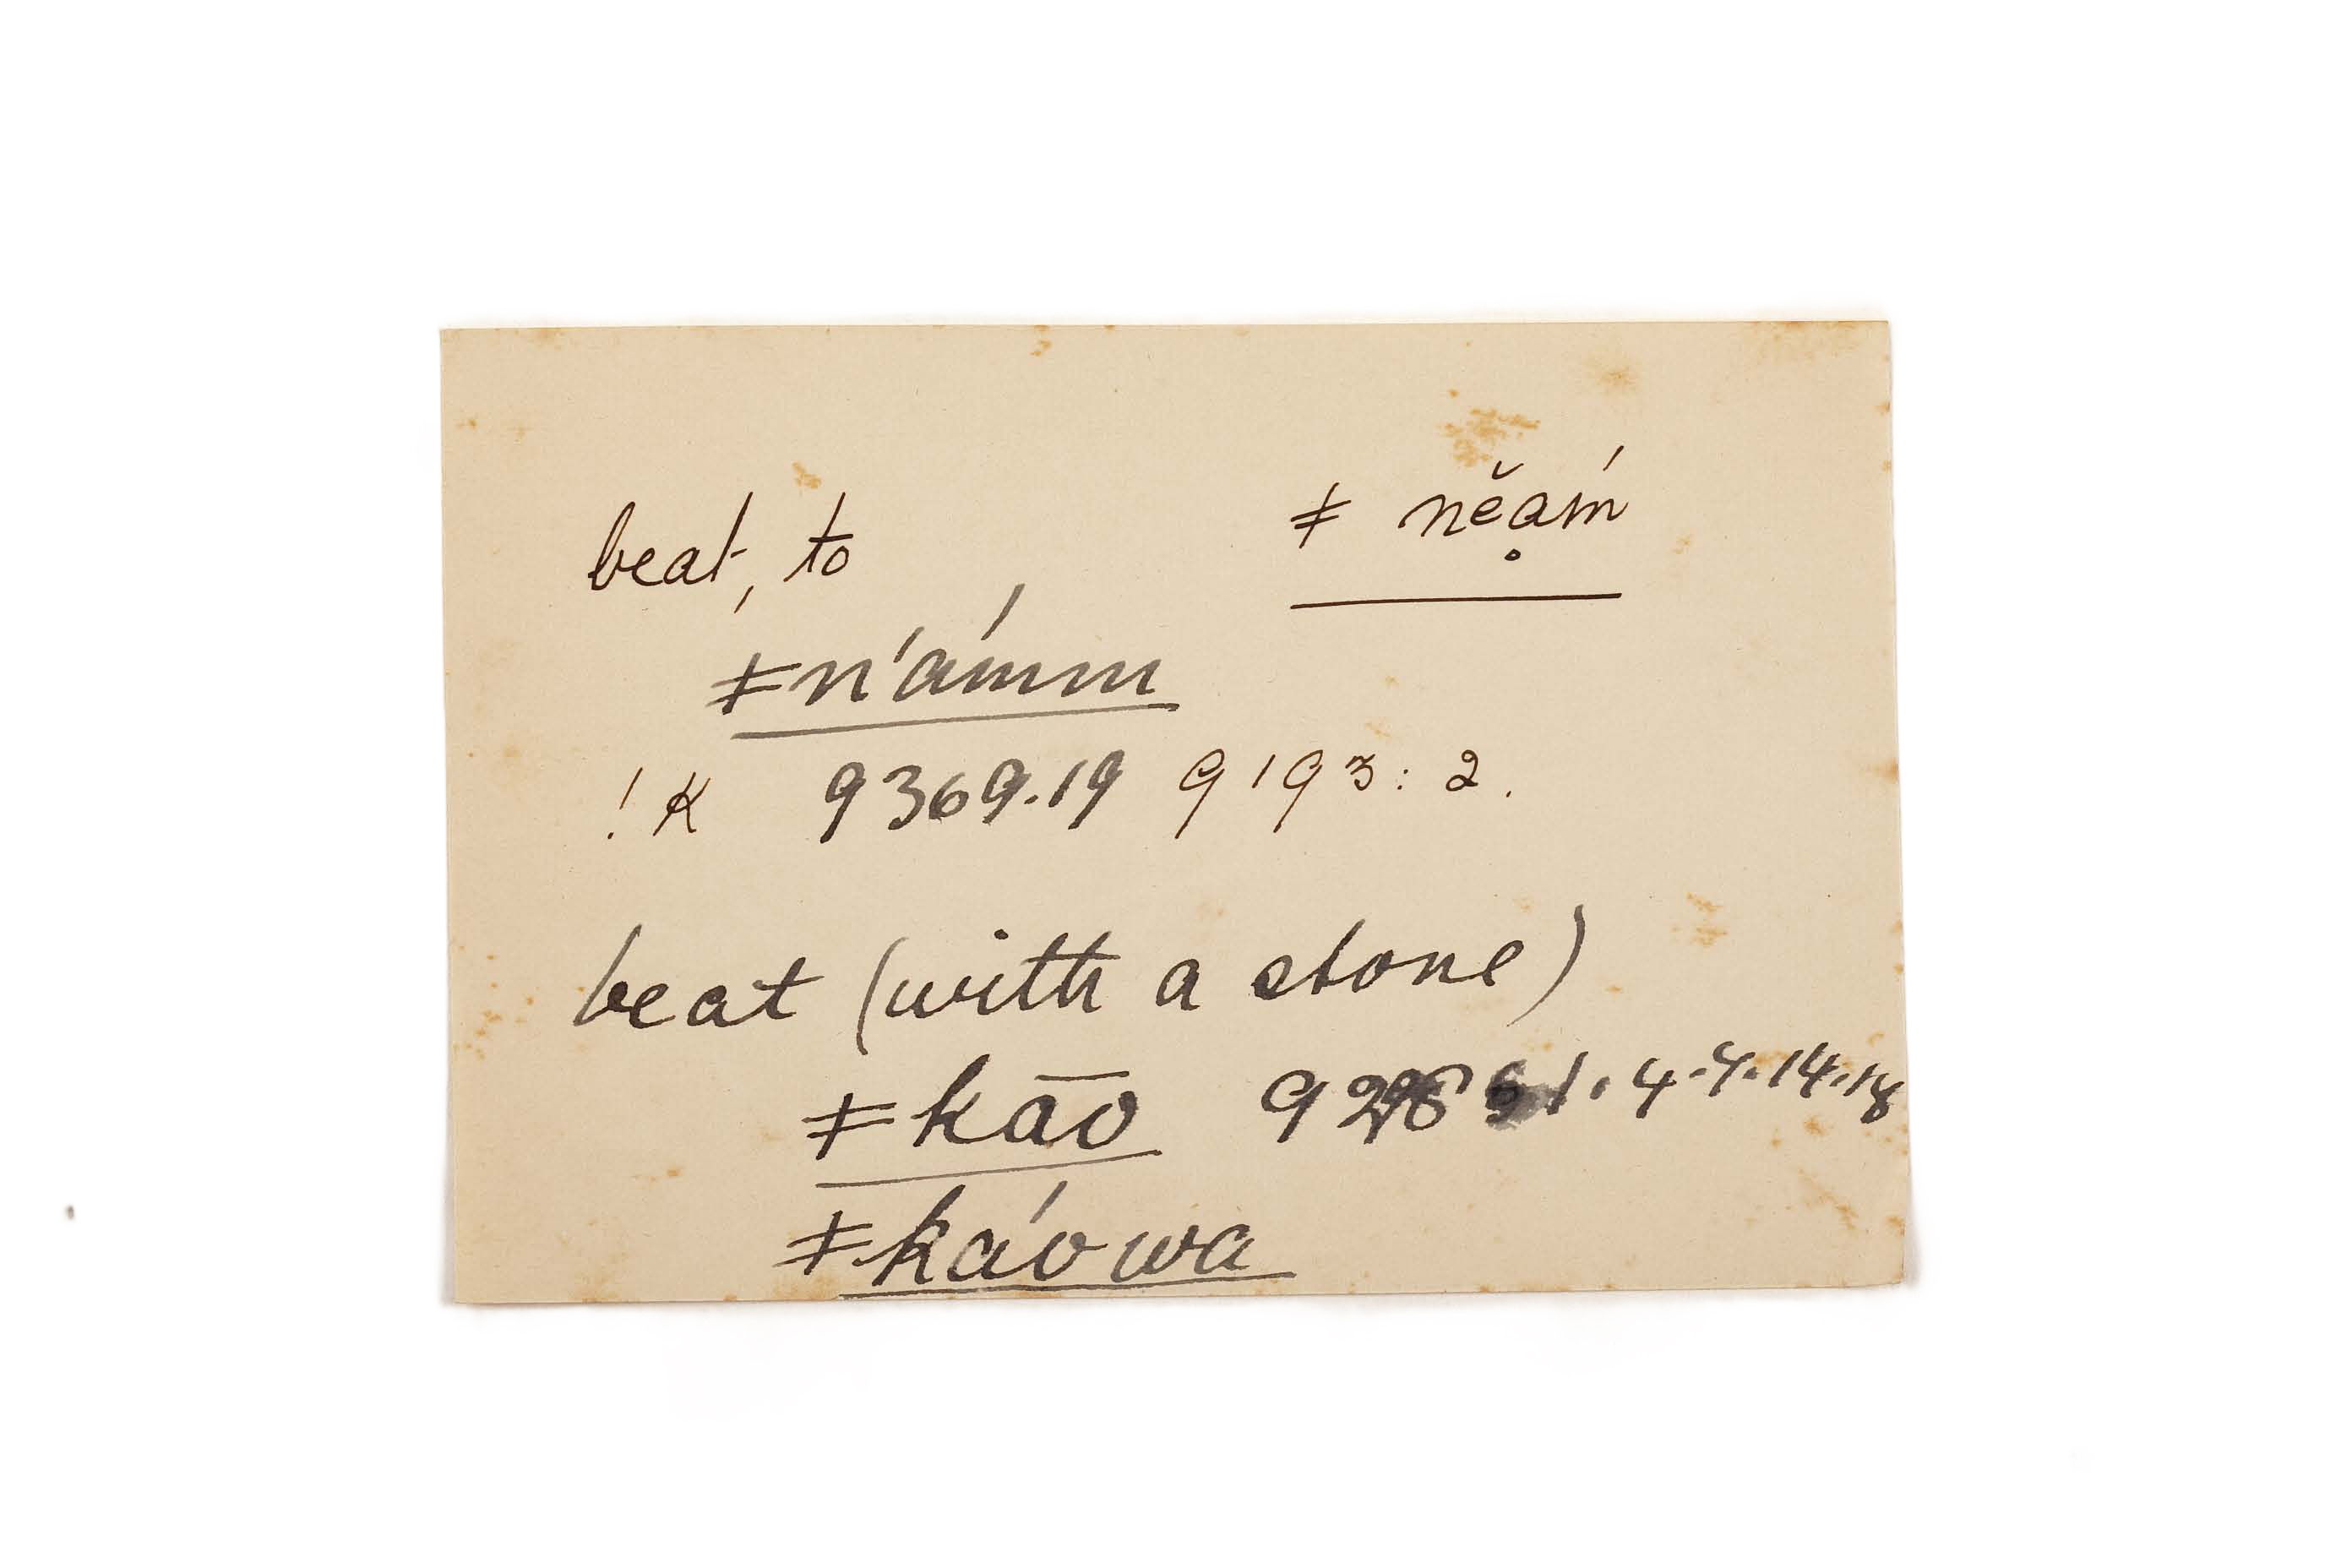 beat, to ǂ nĕḁḿ
ǂn'ámm
!K 9369.19 9193:2.
beat (with a stone)
ǂkāō 1.4.14.18
ǂkáowa